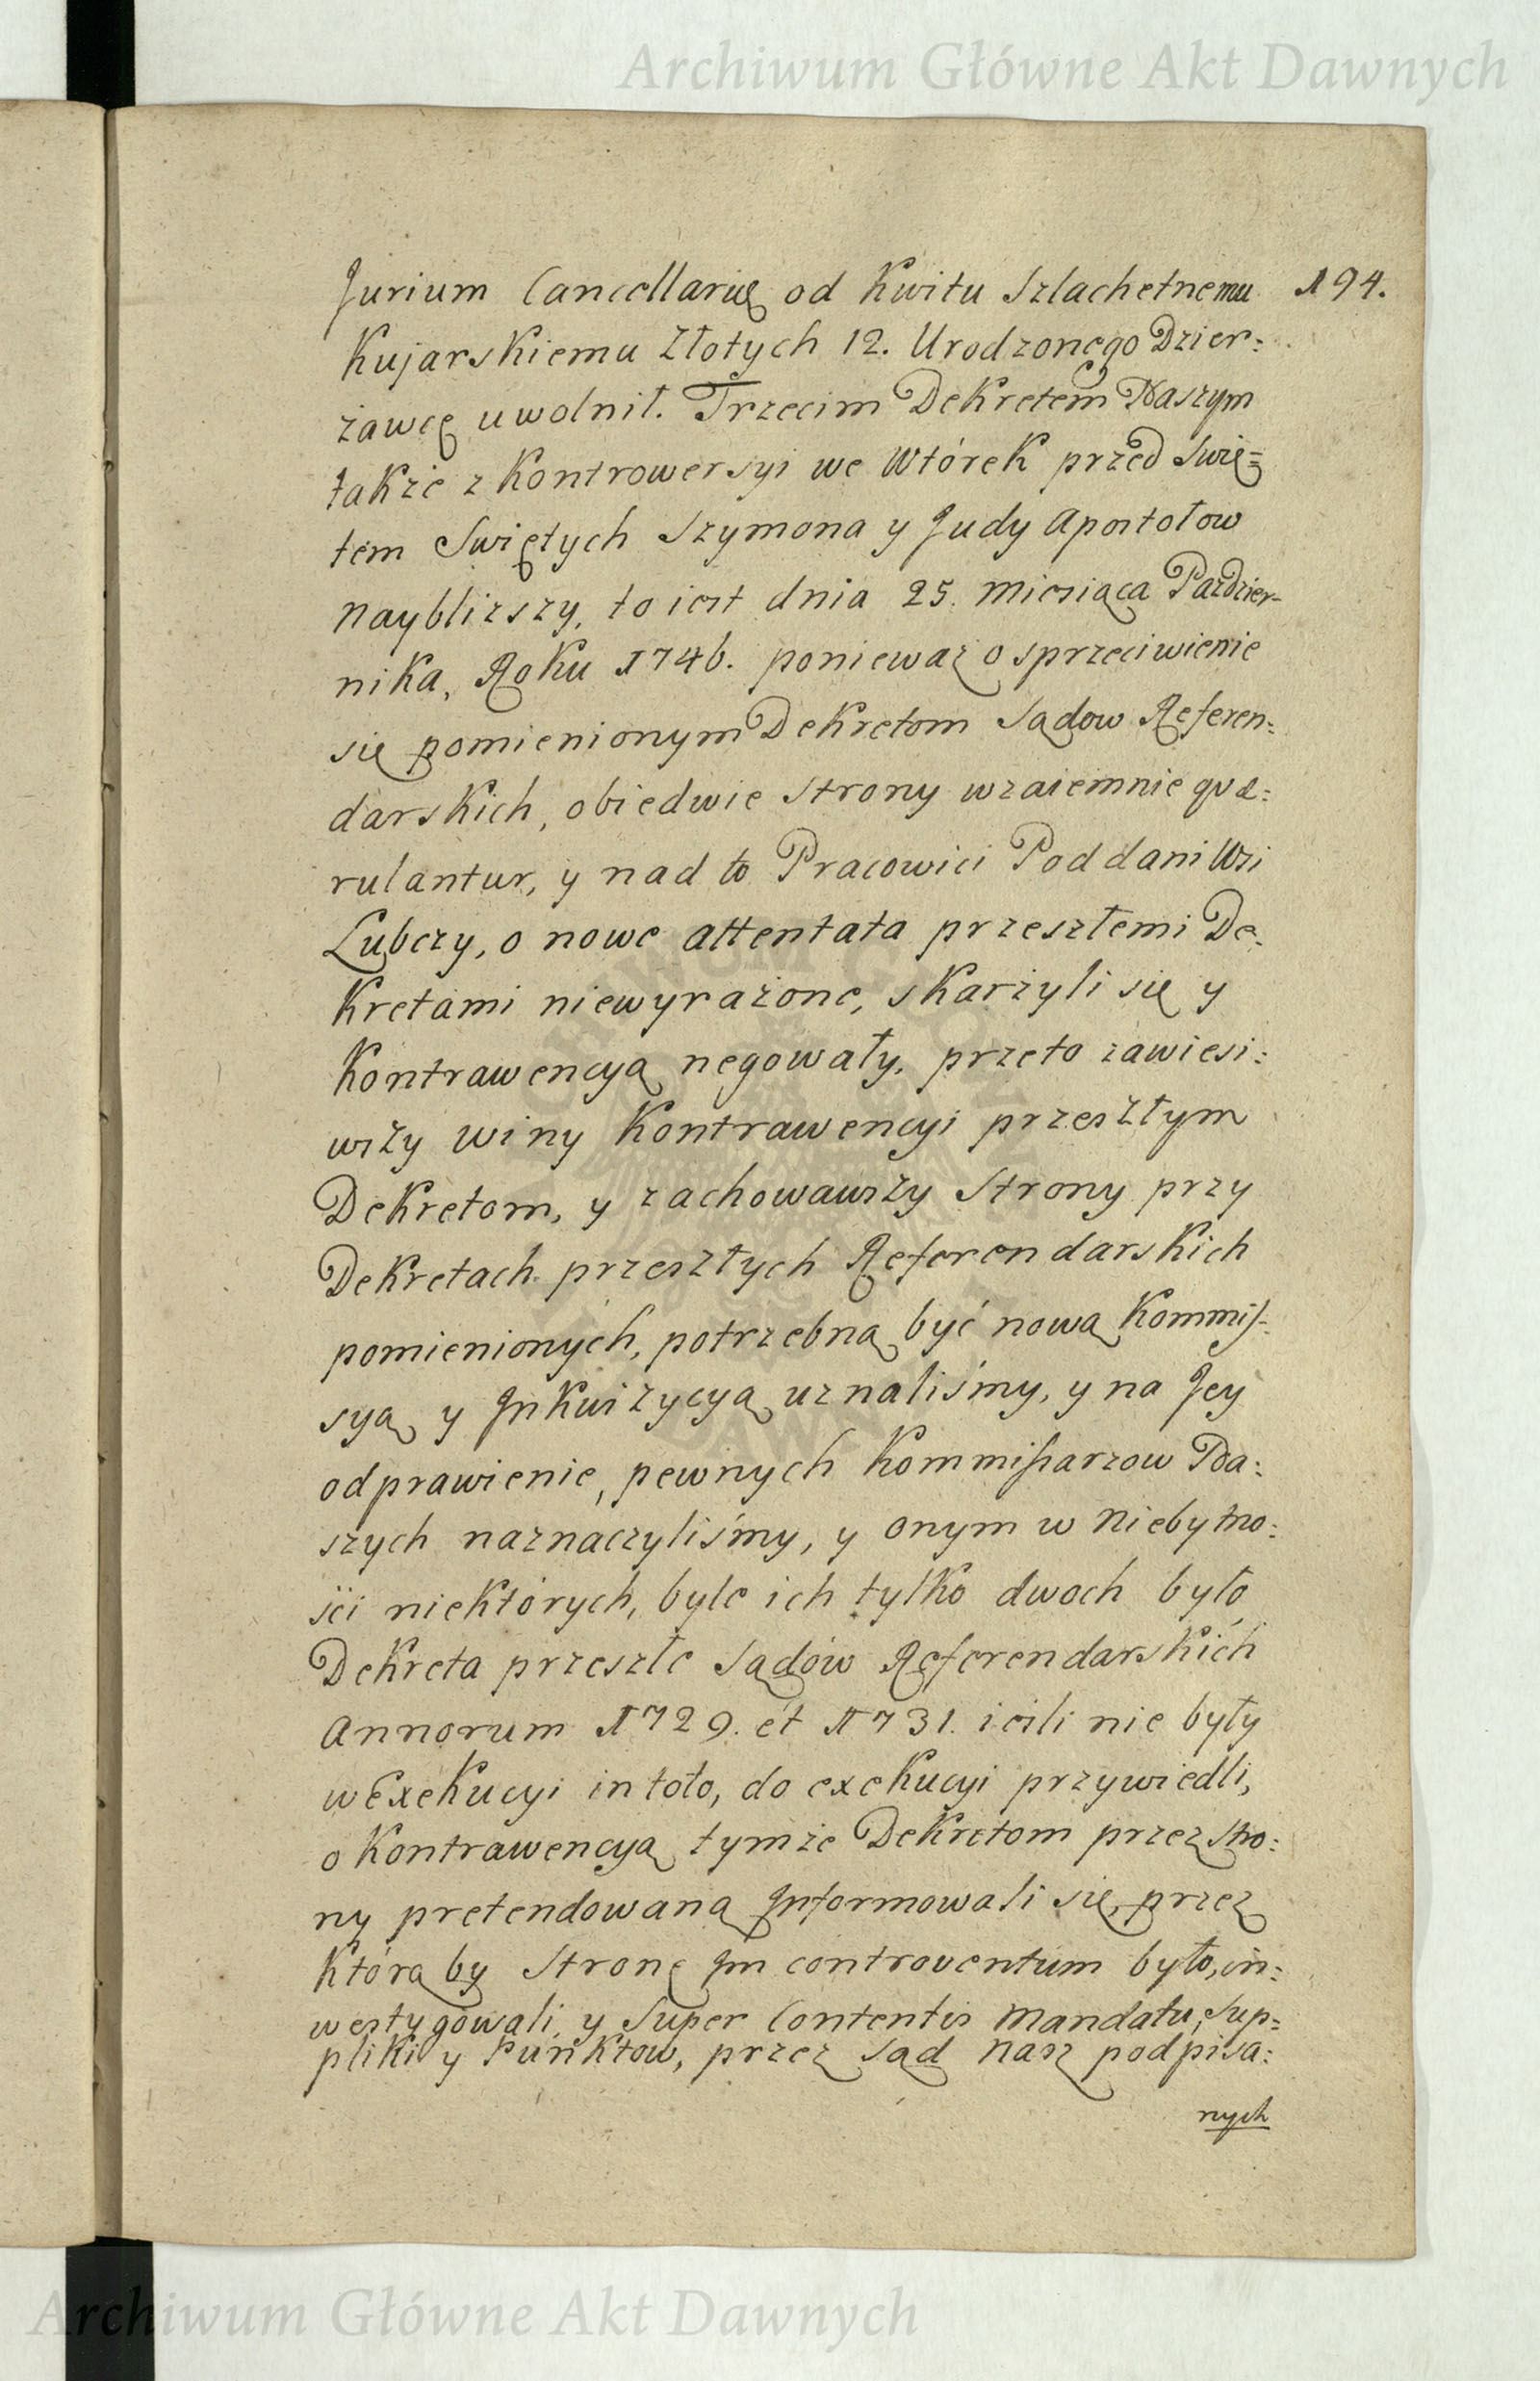 Archiwum Główne Akt Dawnych
Jurium Cancellariæ od Kwitu Szlachetnemu 194.
Kujarskiemu Złotych 12. Urodzonego Dzier:
żawcę uwolnił. Trzecim Dekretem Naszym
także z Kontrowersyi we Wtórek przed Swię=
tem Swiętych Szymona y Judy Apostołow
nayblizszy, to iest dnia 25. Miesiąca Paździer-
nika, Roku 1746. ponieważ o sprzeciwienie
się pomienionym Dekretom Sądow Referen:
darskich, obiedwie Strony wzaiemnie quæ:
rulantur, y nad to Pracowici Poddani Wsi
Lubczy, o nowe attentata przeszłemi De:
kretami niewyrażone, skarżyli się y
Kontrawencyą negowały, przeto zawiesi:
wszy winy Kontrawencyi przeszłym
Dekretom, y zachowawszy Strony przy
Dekretach przeszłych Referendarskich
pomienionych, potrzebną być nową Kommis-
syą y Jnkwizycyą uznaliśmy, y na Jey
odprawienie, pewnych Kommissarzow Na:
szych naznaczyliśmy, y onym w niebytno:
ści niektórych, byle ich tylko dwoch było
Dekreta przeszłe Sądów Referendarskich
Annorum 1729. et 1731. ieśli nie były
w Exekucyi in toto, do exekucyi przywiedli,
o Kontrawencyą tymże Dekretom przez Stro:
ny pretendowaną Jnformowali się, przez
którą by Stronę Jm controventum było, in:
westygowali, y Super Contentis Mandatu, Sup=
pliki y Punktow, przez Sąd Nasz podpisa:
nych
Archiwum Główne Akt Dawnych